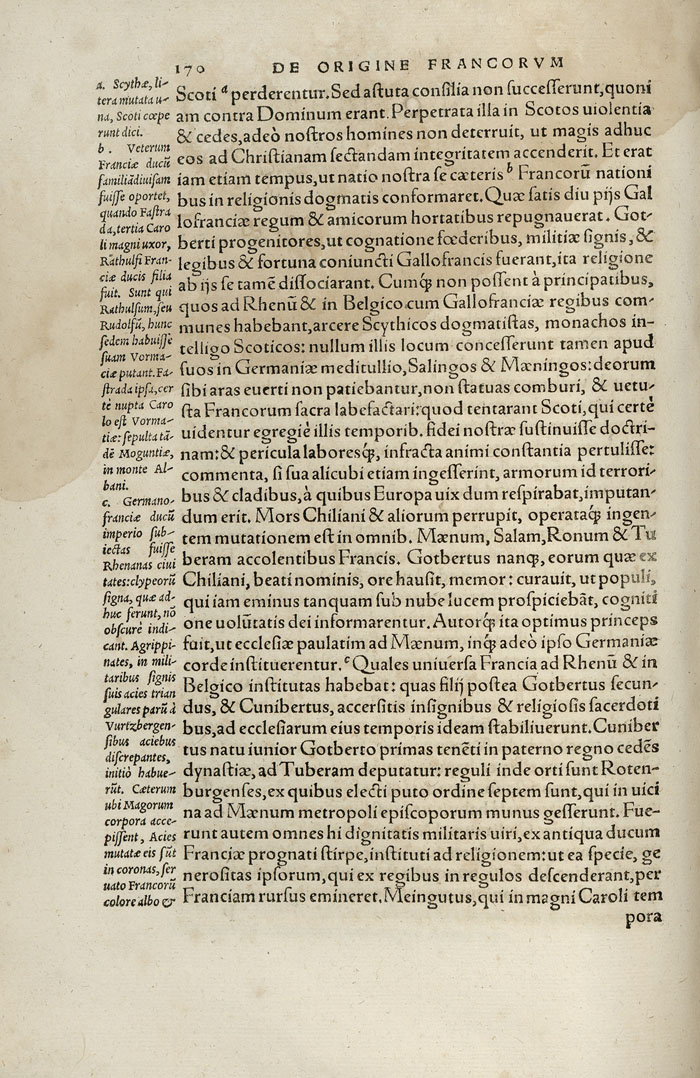 170 DE ORIGINE FRANCORVM
a. Scythæ, li-
tera mutata u-
na, Scoti cœpe
runt dici.
b. Veterum
Franciæ ducũ
familiã diuisam
fuisse oportet,
quando Fastra
da, tertia Caro
li magni uxor,
Rathulfi Fran-
ciæ ducis filia
fuit. Sunt qui
Rathulsum, seu
Rudolfũ, hunc
sedem habuisse
suam Vorma-
ciæ putant. Fa-
strada ipsa, cer
tè nupta Caro
lo est Vorma-
tiæ: sepulta tã-
dẽ Moguntiæ,
in monte Al-
bani.
c. Germano-
franciæ ducũ
imperio sub-
iectas fuisse
Rhenanas ciui
tates: clypeorũ
signa, quæ ad-
huc ferunt, nõ
obscurè indi-
cant. Agrippi-
nates, in mili-
taribus signis
suis acies trian
gulares parũ à
Vurtzbergen-
sibus aciebus
discrepantes,
initiò habue-
rũt. Cæterum
ubi Magorum
corpora acce-
pissent, Acies
mutatæ eis sũt
in coronas, ser
uato Francorũ
colore albo &
Scoti ᵃ perderentur. Sed astuta consilia non successerunt, quoni
am contra Dominum erant. Perpetrata illa in Scotos uiolentia
& cedes, adeò nostros homines non deterruit, ut magis adhuc
eos ad Christianam sectandam integritatem accenderit. Et erat
iam etiam tempus, ut natio nostra se cæteris ᵇ Francorũ nationi
bus in religionis dogmatis conformaret. Quæ satis diu pijs Gal
lofranciæ regum & amicorum hortatibus repugnauerat. Got-
berti progenitores, ut cognatione fœderibus, militiæ signis, &
legibus & fortuna coniuncti Gallofrancis fuerant, ita religione
ab ijs se tamẽ dissociarant. Cumq́; non possent à principatibus,
quos ad Rhenũ & in Belgico cum Gallofranciæ regibus com-
munes habebant, arcere Scythicos dogmatistas, monachos in-
telligo Scoticos: nullum illis locum concesserunt tamen apud
suos in Germaniæ meditullio, Salingos & Mæningos: deorum
sibi aras euerti non patiebantur, non statuas comburi, & uetu-
sta Francorum sacra labefactari: quod tentarant Scoti, qui certè
uidentur egregiè illis temporib. fidei nostræ sustinuisse doctri-
nam: & pericula laboresq́;, infracta animi constantia pertulisse:
commenta, si sua alicubi etiam ingesserint, armorum id terrori-
bus & cladibus, à quibus Europa uix dum respirabat, imputan-
dum erit. Mors Chiliani & aliorum perrupit, operataq́; ingen-
tem mutationem est in omnib. Mænum, Salam, Ronum & Tu
beram accolentibus Francis. Gotbertus nanq́;, eorum quæ ex
Chiliani, beati nominis, ore hausit, memor: curauit, ut populi,
qui iam eminus tanquam sub nube lucem prospiciebãt, cogniti
one uolũtatis dei informarentur. Autorq́; ita optimus princeps
fuit, ut ecclesiæ paulatim ad Mænum, inq́; adeò ipso Germaniæ
corde instituerentur. ᶜ Quales uniuersa Francia ad Rhenũ & in
Belgico institutas habebat: quas filij postea Gotbertus secun-
dus, & Cunibertus, accersitis insignibus & religiosis sacerdoti
bus, ad ecclesiarum eius temporis ideam stabiliuerunt. Cuniber
tus natu iunior Gotberto primas tenẽti in paterno regno cedẽs
dynastiæ, ad Tuberam deputatur: reguli inde orti sunt Roten-
burgenses, ex quibus electi puto ordine septem sunt, qui in uici
na ad Mænum metropoli episcoporum munus gesserunt. Fue-
runt autem omnes hi dignitatis militaris uiri, ex antiqua ducum
Franciæ prognati stirpe, instituti ad religionem: ut ea specie, ge
nerositas ipsorum, qui ex regibus in regulos descenderant, per
Franciam rursus emineret. Meingutus, qui in magni Caroli tem
pora